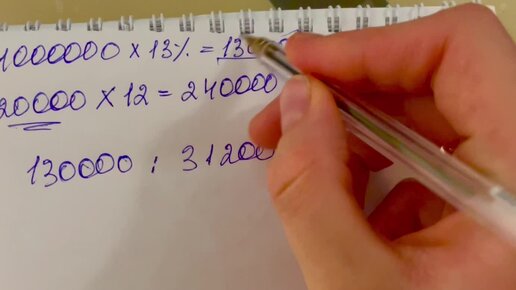 1000000 x 13% = 130
20000 x 12 = 240000
130000 : 31200